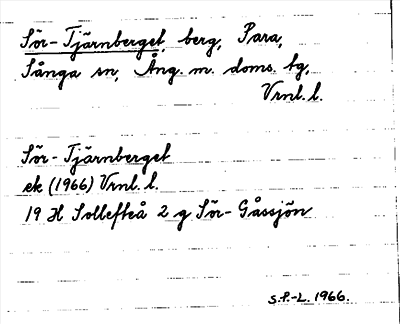 Sör-Tjärnberget, berg, Para,
Sånga sn, Ång. m. doms. tg,
Vrnl. l.
Sör-Tjärnberget
ek (1966) Vrnl. l.
19 H Sollefteå 2 g Sör-Gåssjön
S.P.-L. 1966.